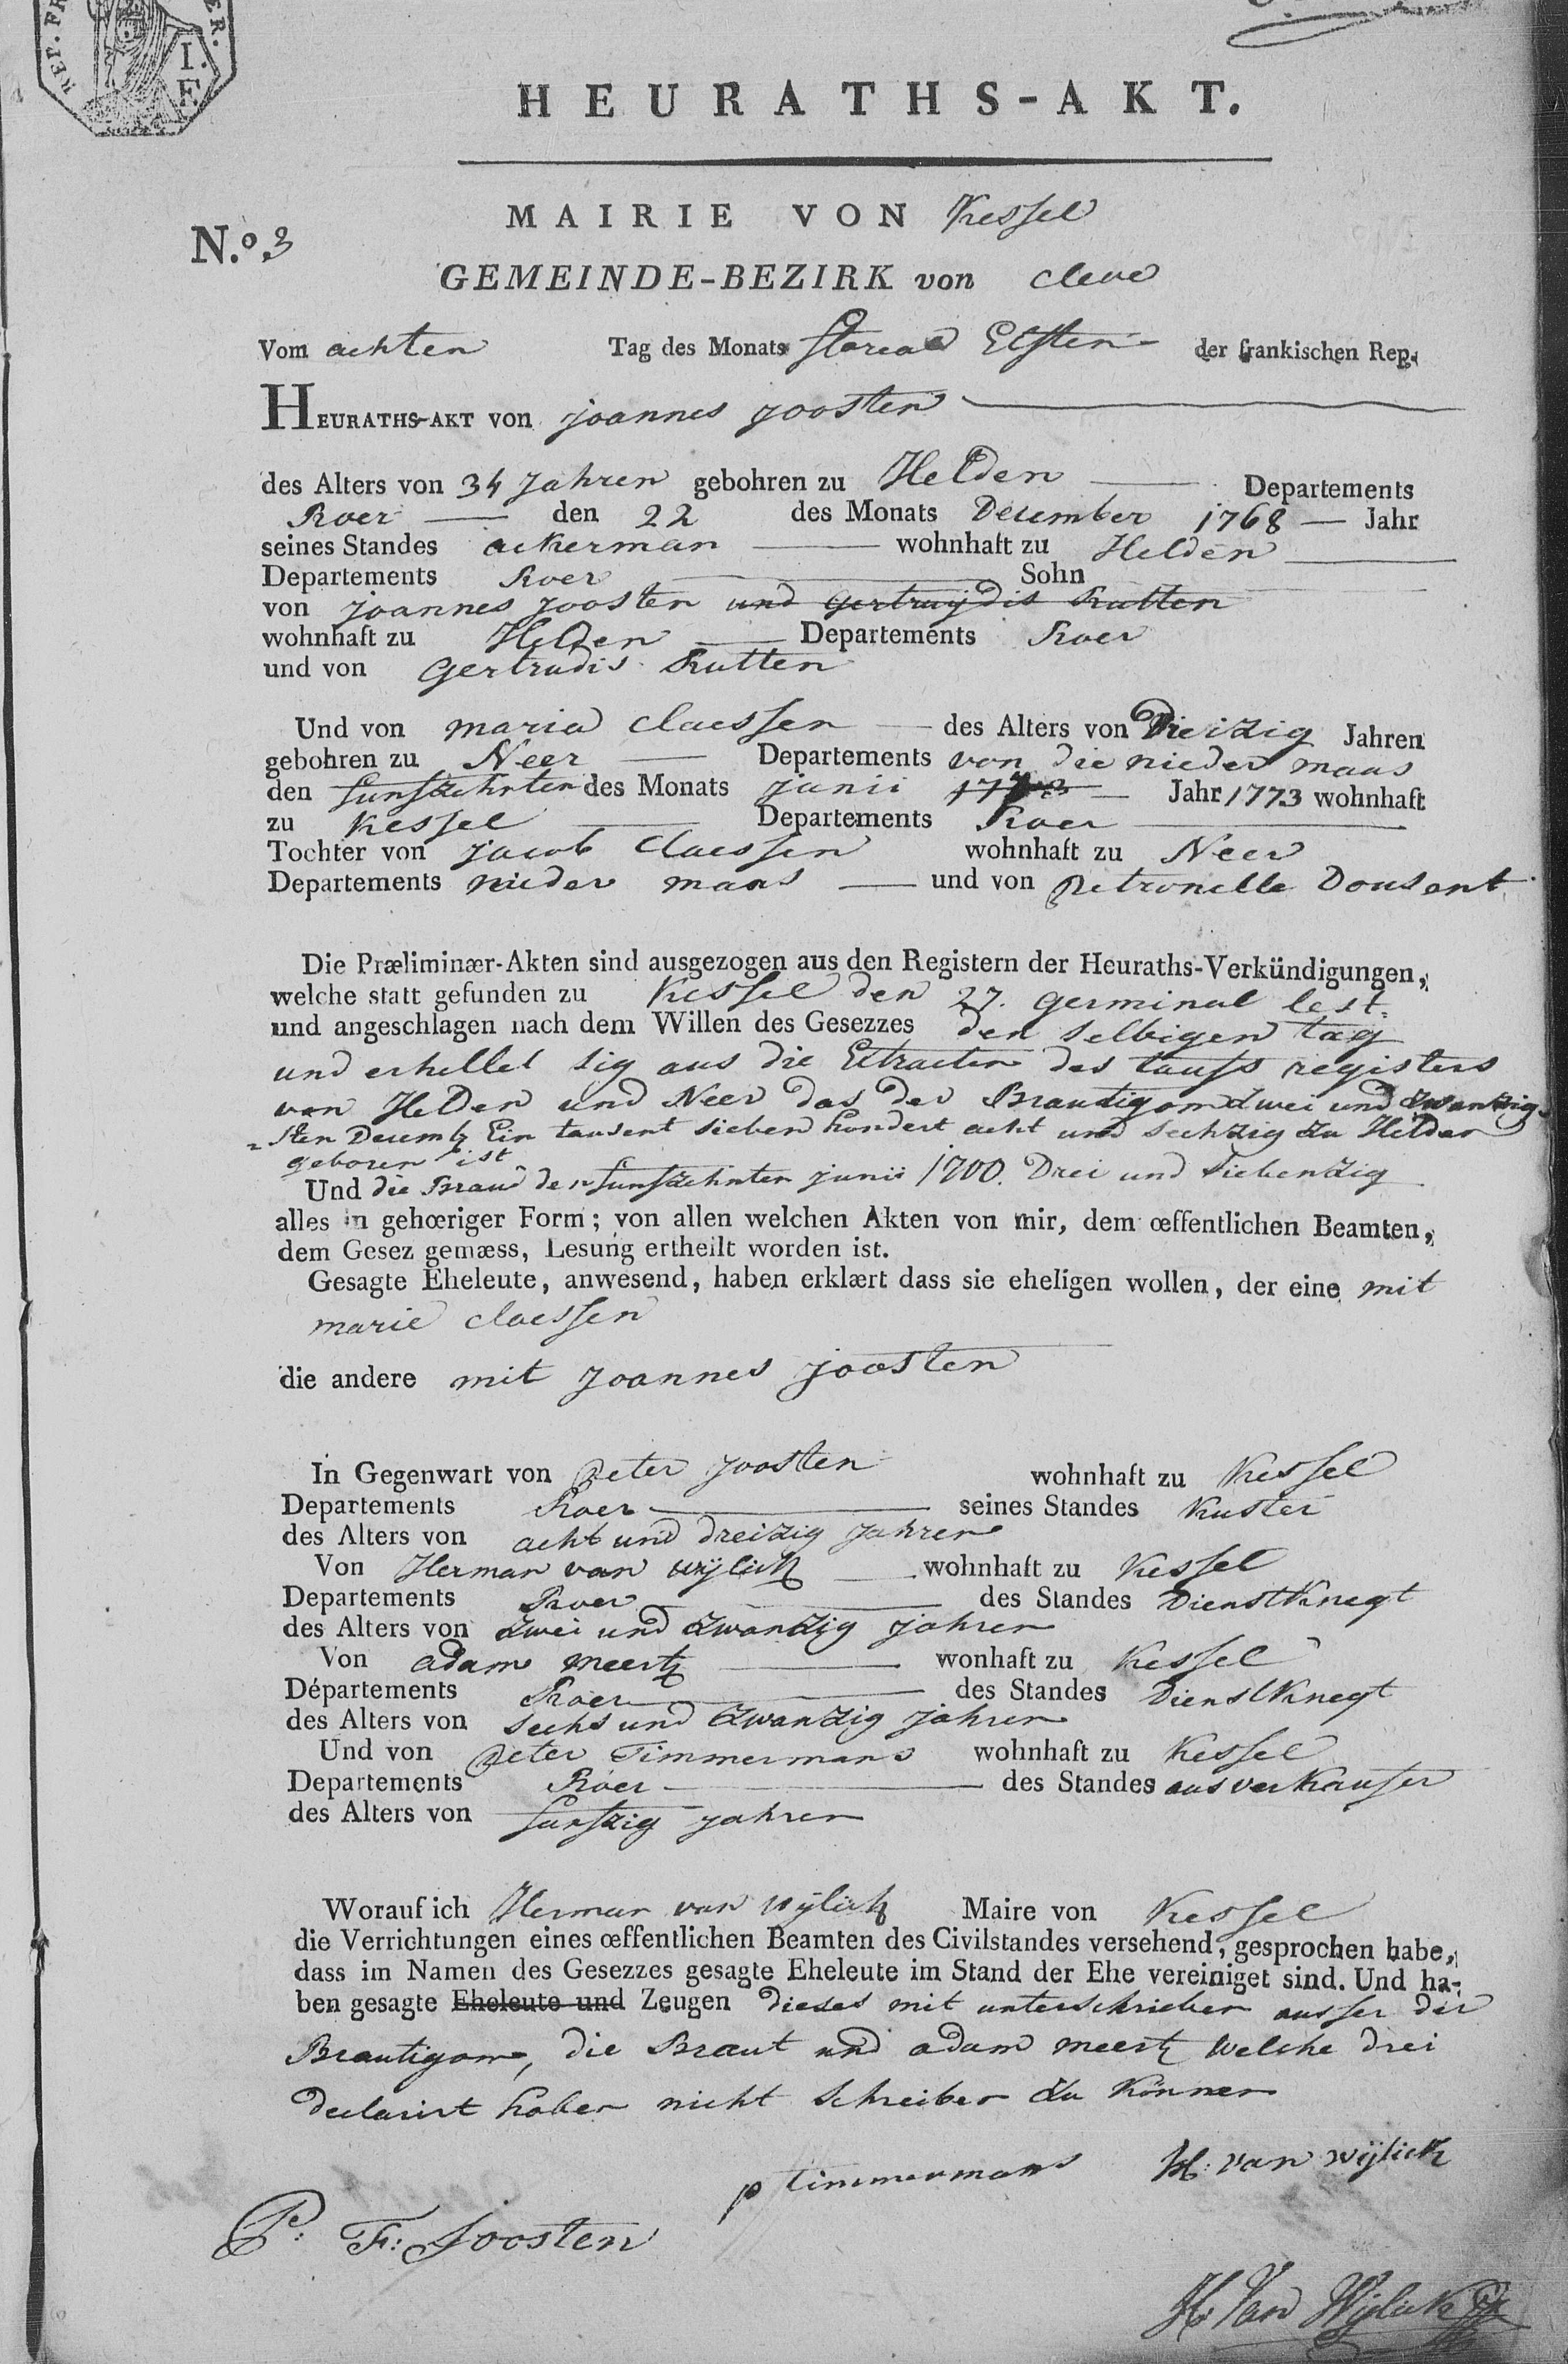 REP. FR
ER.
I.
F.
HEURATHS-AKT.
MAIRIE VON Kessel
N.º 3
GEMEINDE-BEZIRK von Cleve
Vom achten Tag des Monats floreal Elften der frankischen Rep.
HEURATHS-AKT von joannes joosten
des Alters von 34 Jahren gebohren zu Helden Departements
Roer den 22 des Monats December 1768 Jahr
seines Standes ackerman wohnhaft zu Helden
Departements Roer Sohn
von joannes joosten und gertruijdis Rutten
wohnhaft zu Helden Departements Roer
und von Gertrudis Rutten
Und von maria claessen des Alters von Dreizig Jahren
gebohren zu Neer Departements von die nieder maas
den funfzehnten des Monats junii Jahr 1773 wohnhaft
zu Kessel Departements Roer
Tochter von jacob Claessen wohnhaft zu Neer
Departements nieder maas und von Petronelle Dousent
Die Præliminær-Akten sind ausgezogen aus den Registern der Heuraths-Verkündigungen,
welche statt gefunden zu Kessel den 27. germinal lest.
und angeschlagen nach dem Willen des Gesezzes den selbigen tag
und erhellet sig aus die Extracten des taufs registers
von Helden und Neer das der Brautigom zwei und zwanzig-
sten Decemb Ein tausent sieben hondert acht und sechzig zu Helden
geboren ist
Und die Braud den funfzehnten junii 1700. Drei und siebenzig
alles in gehœriger Form; von allen welchen Akten von mir, dem œffentlichen Beamten,
dem Gesez gemæss, Lesung ertheilt worden ist.
Gesagte Eheleute, anwesend, haben erklært dass sie eheligen wollen, der eine mit
marie claessen
die andere mit joannes joosten
In Gegenwart von Peter joosten wohnhaft zu Kessel
Departements Roer seines Standes Kuster
des Alters von acht und dreizig jahren
Von Herman van wijlick wohnhaft zu Kessel
Departements Roer des Standes Dienstknegt
des Alters von zwei und zwanzig jahren
Von adam meertz wonhaft zu Kessel
Départements Roer des Standes Dienstknegt
des Alters von sechs und zwanzig jahren
Und von Peter Timmermans wohnhaft zu Kessel
Departements Roer des Standes ausverkaufer
des Alters von funfzig jahren
Worauf ich Herman van wijlick Maire von Kessel
die Verrichtungen eines œffentlichen Beamten des Civilstandes versehend, gesprochen habe,
dass im Namen des Gesezzes gesagte Eheleute im Stand der Ehe vereiniget sind. Und ha-
ben gesagte Eheleute und Zeugen dieses mit unterschrieben ausser der
Brautigom, die Braut und adam meertz welche drei
declarirt haben nicht schreiben zu können
p timmermans H: van wijlick
P: F: Joosten
H. Van Wijlick